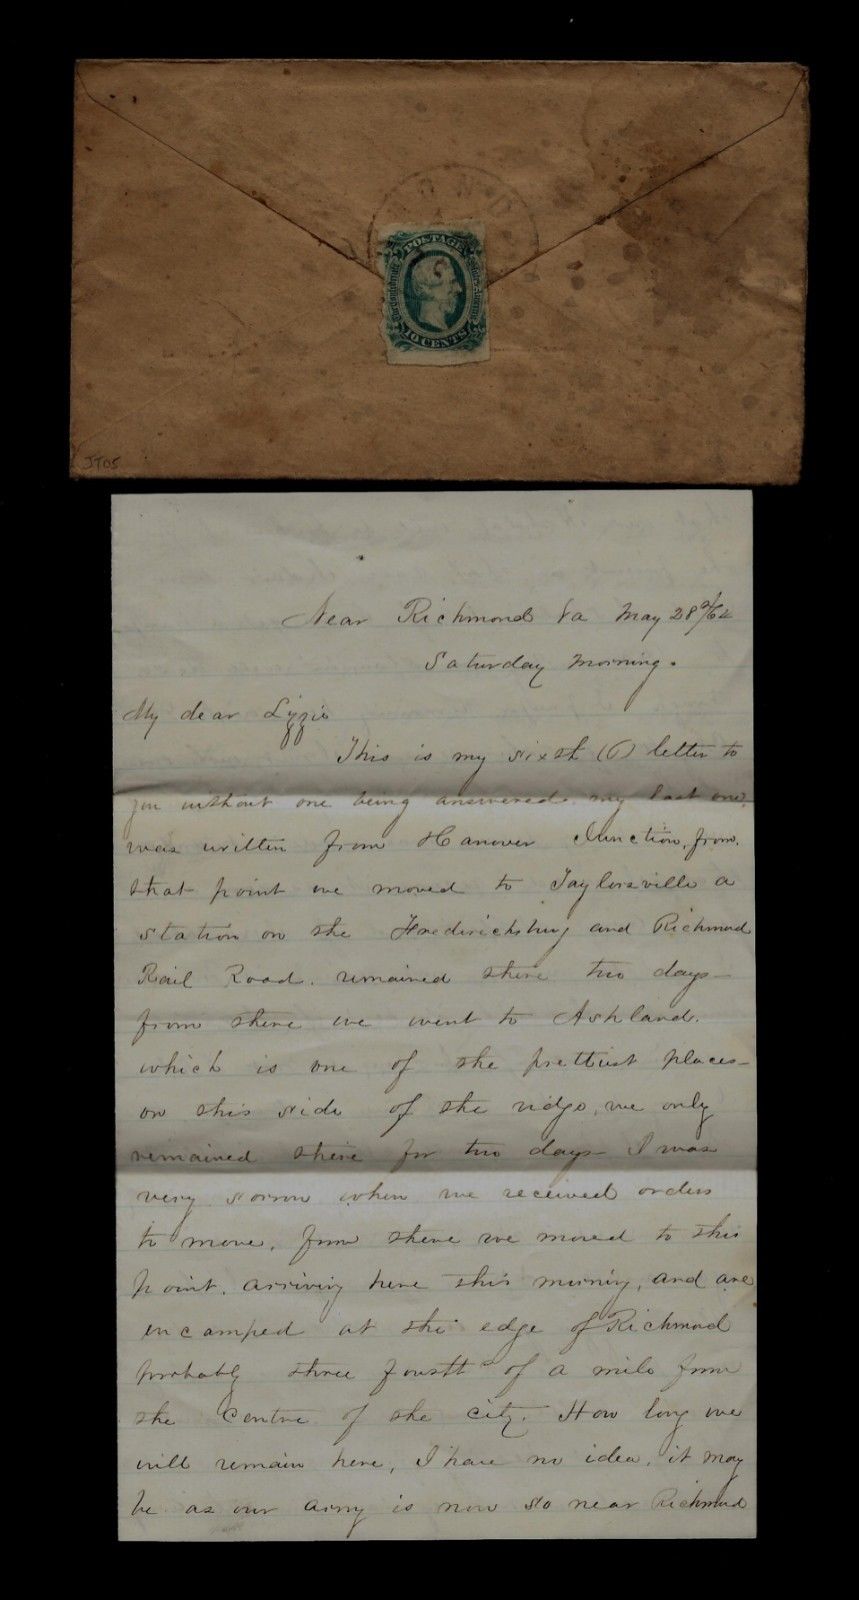 POSTAGE
The Confederate States of America
10 CENTS
JT05
Near Richmond Va May 28th/64
Saturday Morning.
My dear Lizzie
This is my sixth (6) letter to
you without one being answered. my last one,
was written from Hanover Junction, from.
that point we moved to Taylorsville a
station on the Fredericksburg and Richmond
Rail Road. remained there two days-
from there we went to Ashland.
which is one of the prettiest places-
on this side of the ridge, we only
remained there for two days- I was
very sorrow when we received orders
to move, from there we moved to this
point. arriving here this morning, and are
encamped at the edge of Richmond
probably three fourth of a mile from
the Centre of the city. How long we
will remain here, I have no idea, it may
be as our army is now so near Richmond